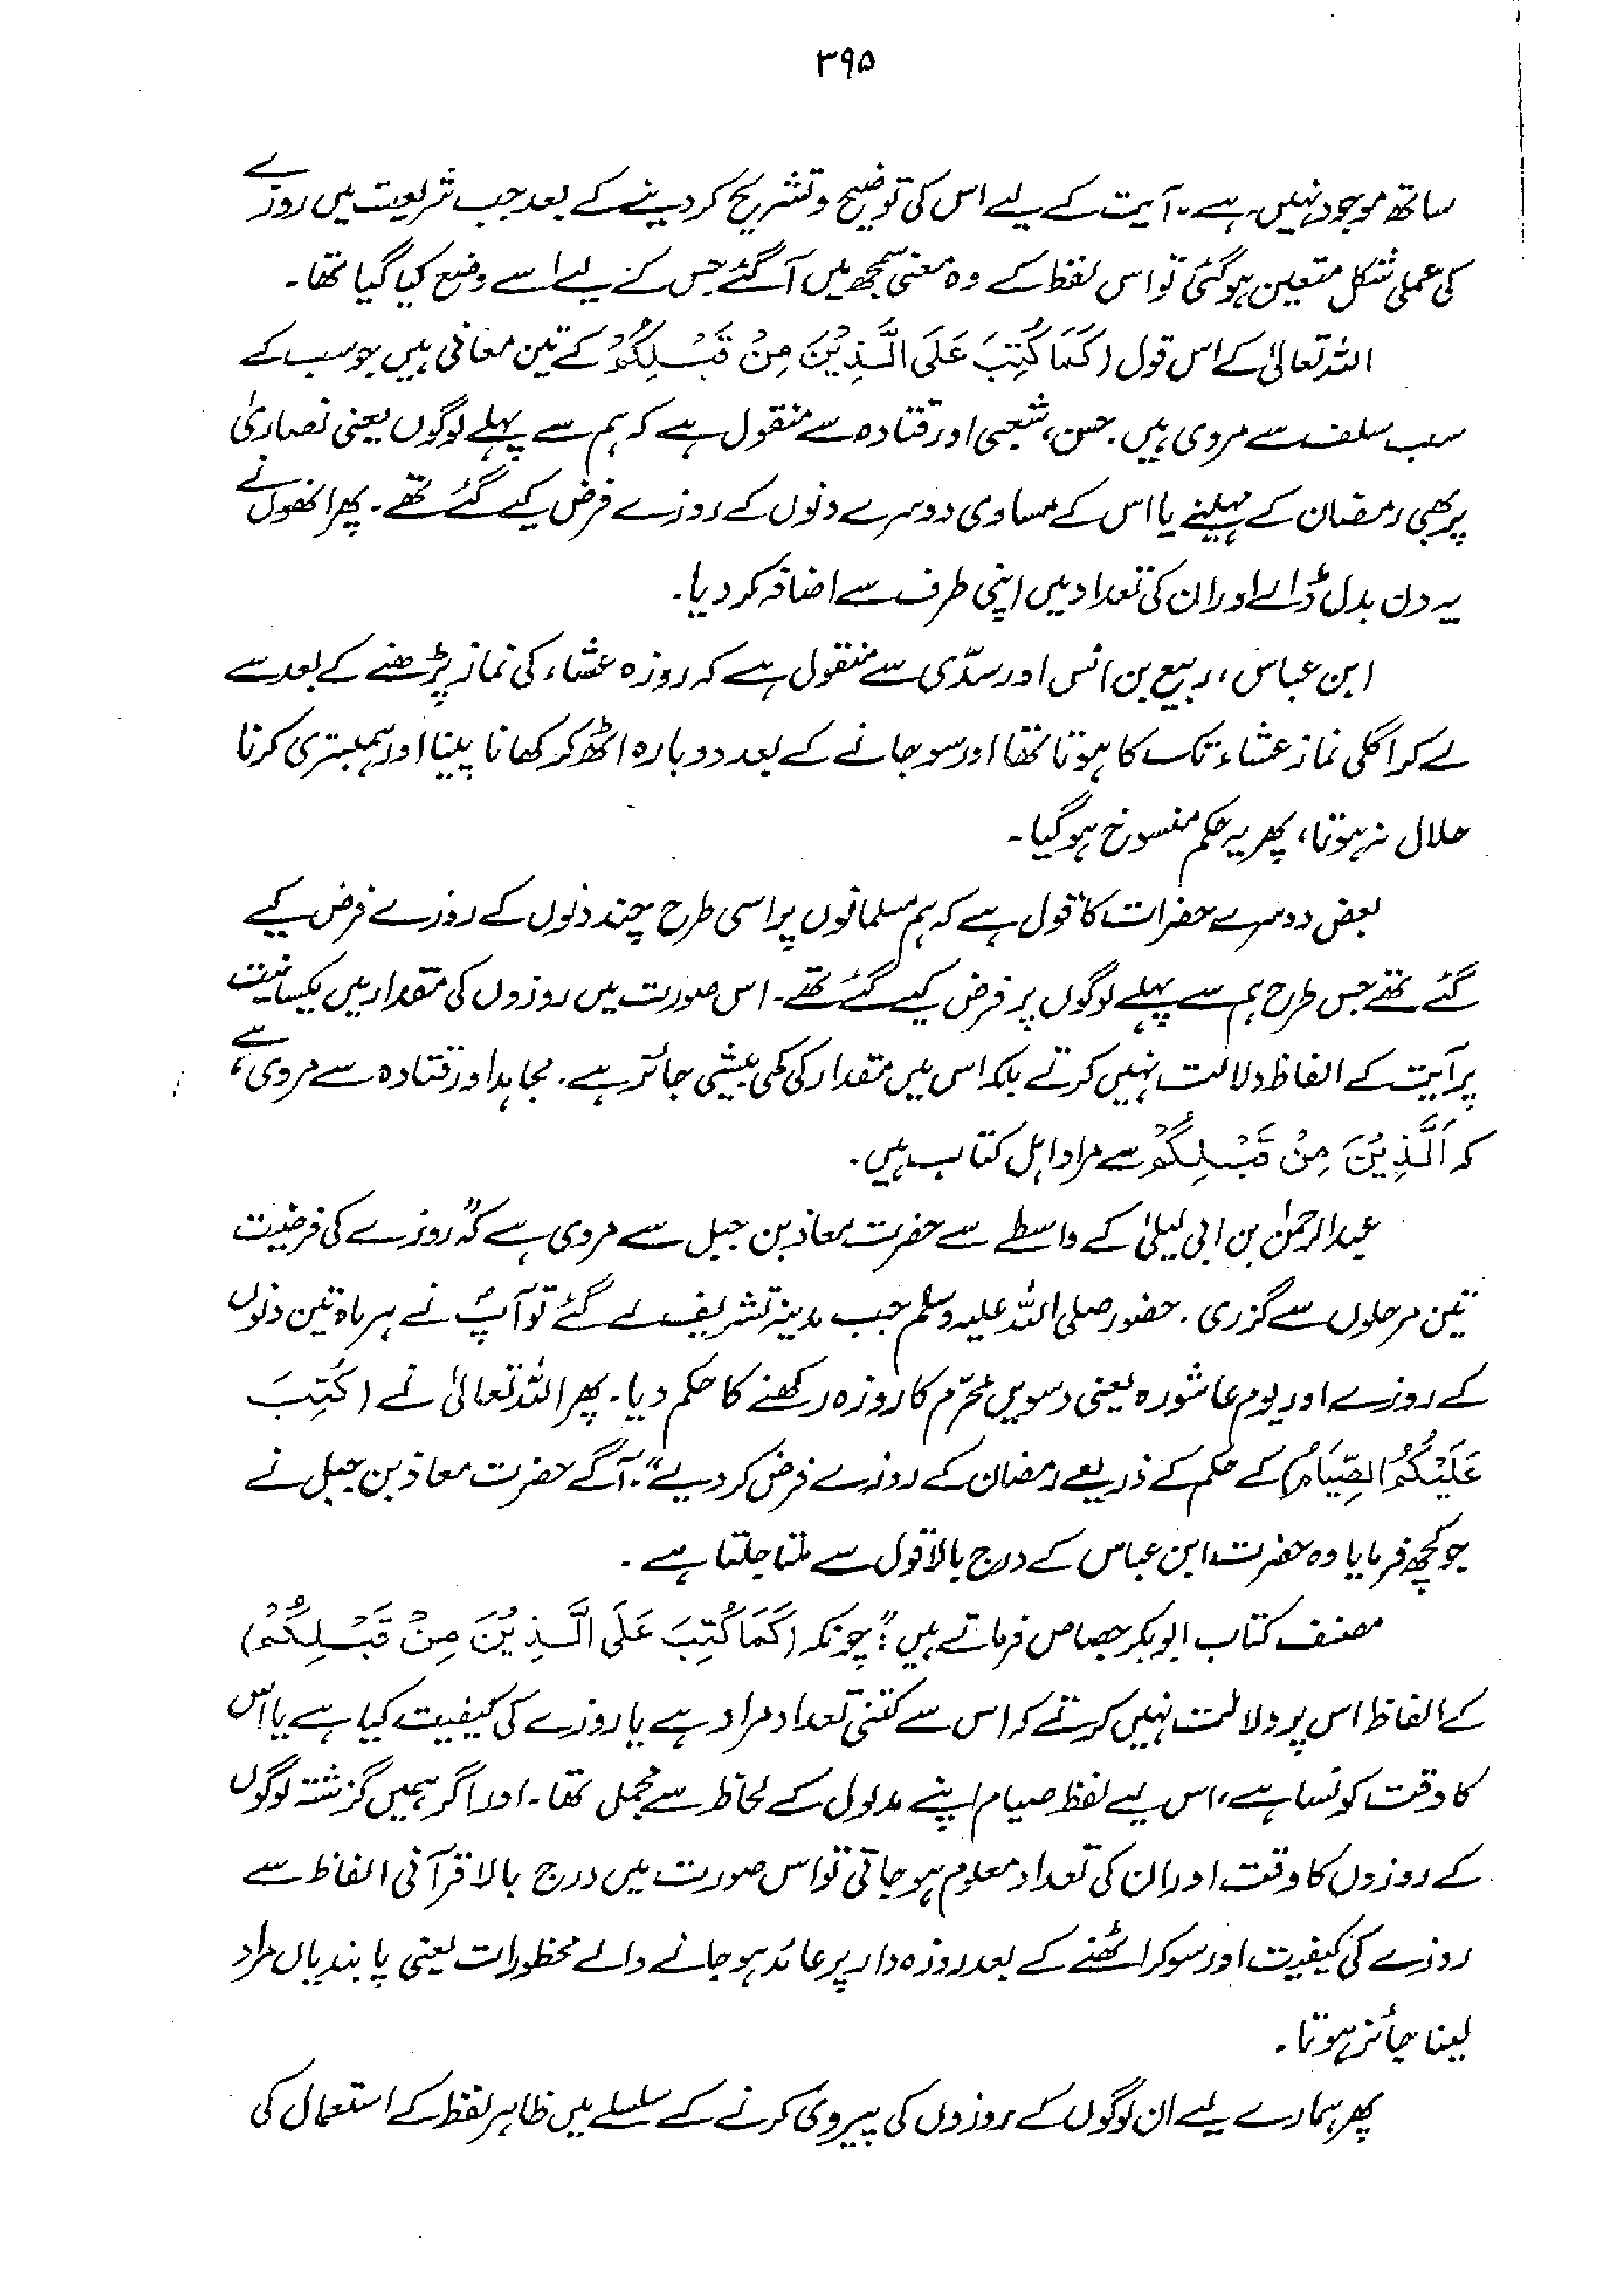 ۳۹۵
ساتھ موجود نہیں ہے۔ آیت کے لیے اس کی توضیح و تشریح کر دینے کے بعد جب شریعت میں روزے
کی عملی شکل متعین ہو گئی تو اس لفظ کے وہ معنی سمجھ میں آ گئے جس کے لیے اسے وضع کیا گیا تھا۔
اللہ تعالیٰ کے اس قول (كَمَا كُتِبَ عَلَى الَّذِيْنَ مِنْ قَبْلِكُمْ کے تین معانی ہیں جو سب کے
سب سلف سے مروی ہیں۔ حسن، شعبی اور قتادہ سے منقول ہے کہ ہم سے پہلے لوگوں یعنی نصاریٰ
پر بھی رمضان کے مہینے یا اس کے مساوی دوسرے دنوں کے روزے فرض کیے گئے تھے۔ پھر انھوں نے
یہ دن بدل ڈالے اور ان کی تعداد میں اپنی طرف سے اضافہ کر دیا۔
ابن عباس، ربیع بن انس اور سدّی سے منقول ہے کہ روزہ عشاء کی نماز پڑھنے کے بعد سے
لے کر اگلی نماز عشاء تک کا ہوتا تھا اور سو جانے کے بعد دوبارہ اٹھ کر کھانا پینا اور ہمبستری کرنا
حلال نہ ہوتا، پھر یہ حکم منسوخ ہو گیا۔
بعض دوسرے حضرات کا قول ہے کہ ہم مسلمانوں پر اسی طرح چند دنوں کے روزے فرض کیے
گئے تھے جس طرح ہم سے پہلے لوگوں پر فرض کیے گئے تھے۔ اس صورت میں روزوں کی مقدار میں یکسانیت
پر آیت کے الفاظ دلالت نہیں کرتے بلکہ اس میں مقدار کی کمی بیشی جائز ہے۔ مجاہد اور قتادہ سے مروی ہے،
کہ اَلَّذِيْنَ مِنْ قَبْلِكُمْ سے مراد اہل کتاب ہیں۔
عبدالرحمٰن بن ابی لیلیٰ کے واسطے سے حضرت معاذ بن جبل سے مروی ہے کہ ”روزے کی فرضیت
تین مرحلوں سے گزری۔ حضور صلی اللہ علیہ وسلم جب مدینہ تشریف لے گئے تو آپؐ نے ہر ماہ تین دنوں
کے روزے اور یوم عاشورہ یعنی دسویں محرّم کا روزہ رکھنے کا حکم دیا۔ پھر اللہ تعالیٰ نے (كُتِبَ
عَلَيْكُمُ الصِّيَامُ) کے حکم کے ذریعے رمضان کے روزے فرض کر دیے“۔ آگے حضرت معاذ بن جبل نے
جو کچھ فرمایا وہ حضرت ابن عباس کے درج بالا قول سے ملتا جلتا ہے۔
مصنف کتاب ابوبکر جصاص فرماتے ہیں: ”چونکہ (كَمَا كُتِبَ عَلَى الَّذِيْنَ مِنْ قَبْلِكُمْ)
کے الفاظ اس پر دلالت نہیں کرتے کہ اس سے کتنی تعداد مراد ہے یا روزے کی کیفیت کیا ہے یا اس
کا وقت کونسا ہے، اس لیے لفظ صیام اپنے مدلول کے لحاظ سے مجمل تھا۔ اور اگر ہمیں گزشتہ لوگوں
کے روزوں کا وقت اور ان کی تعداد معلوم ہو جاتی تو اس صورت میں درج بالا قرآنی الفاظ سے
روزے کی کیفیت اور سو کر اٹھنے کے بعد روزہ دار پر عائد ہو جانے والے محظورات یعنی پابندیاں مراد
لینا جائز ہوتا۔
پھر ہمارے لیے ان لوگوں کے روزوں کی پیروی کرنے کے سلسلے میں ظاہر لفظ کے استعمال کی